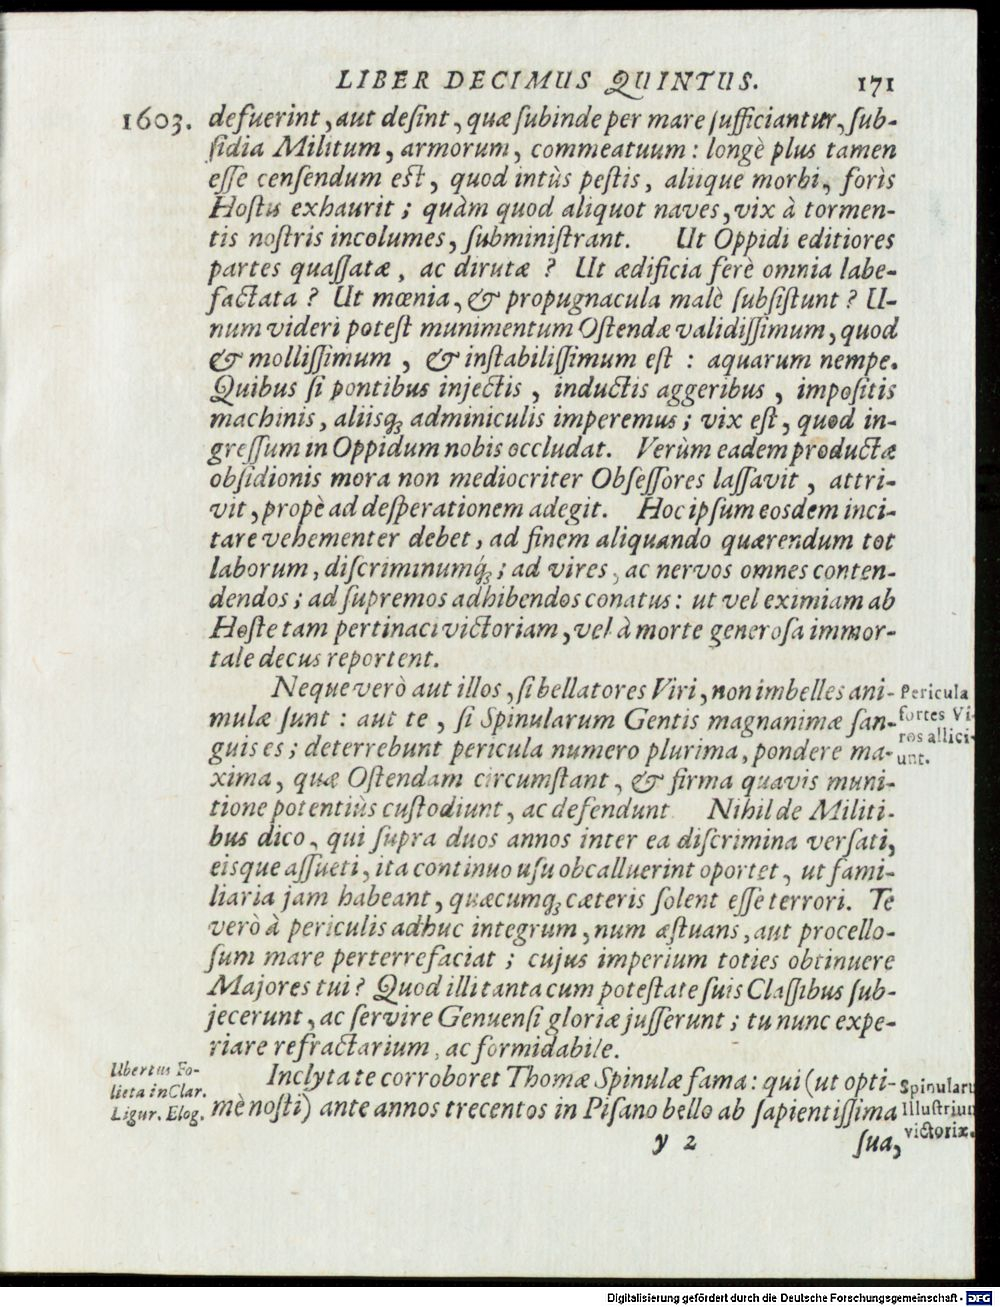 LIBER DECIMUS QUINTUS. 171
1603. defuerint, aut desint, quæ subinde per mare sufficiantur, sub-
sidia Militum, armorum, commeatuum: longè plus tamen
esse censendum est, quod intùs pestis, aliique morbi, foris
Hostis exhaurit; quàm quod aliquot naves, vix à tormen-
tis nostris incolumes, subministrant. Ut Oppidi editiores
partes quassatæ, ac dirutæ? Ut ædificia ferè omnia labe-
factata? Ut mœnia, & propugnacula malè subsistunt? U-
num videri potest munimentum Ostendæ validissimum, quod
& mollissimum, & instabilissimum est: aquarum nempe.
Quibus si pontibus injectis, inductis aggeribus, impositis
machinis, aliisq; adminiculis imperemus; vix est, quod in-
gressum in Oppidum nobis occludat. Verùm eadem productæ
obsidionis mora non mediocriter Obsessores lassavit, attri-
vit, propè ad desperationem adegit. Hoc ipsum eosdem inci-
tare vehementer debet, ad finem aliquando quærendum tot
laborum, discriminumq́;; ad vires, ac nervos omnes conten-
dendos; ad supremos adhibendos conatus: ut vel eximiam ab
Hoste tam pertinaci victoriam, vel à morte generosa immor-
tale decus reportent.
Neque verò aut illos, si bellatores Viri, non imbelles ani-
mulæ sunt: aut te, si Spinularum Gentis magnanimæ san-
guis es; deterrebunt pericula numero plurima, pondere ma-
xima, quæ Ostendam circumstant, & firma quavis muni-
tione potentiùs custodiunt, ac defendunt Nihil de Militi-
bus dico, qui supra duos annos inter ea discrimina versati,
eisque assueti, ita continuo usu obcalluerint oportet, ut fami-
liaria jam habeant, quæcumq; cæteris solent esse terrori. Te
verò à periculis adhuc integrum, num æstuans, aut procello-
sum mare perterrefaciat; cujus imperium toties obtinuere
Majores tui? Quod illi tanta cum potestate suis Classibus sub-
jecerunt, ac servire Genuensi gloriæ jusserunt; tu nunc expe-
riare refractarium, ac formidabile.
Inclyta te corroboret Thomæ Spinulæ fama: qui (ut opti-
mè nosti) ante annos trecentos in Pisano bello ab sapientissima
y 2 sua,
Pericula
fortes Vi-
ros allici-
unt.
Ubertus Fo-
lieta in Clar.
Ligur. Elog.
Spinularu
Illustriu
victoriæ.
Digitalisierung gefördert durch die Deutsche Forschungsgemeinschaft - DFG